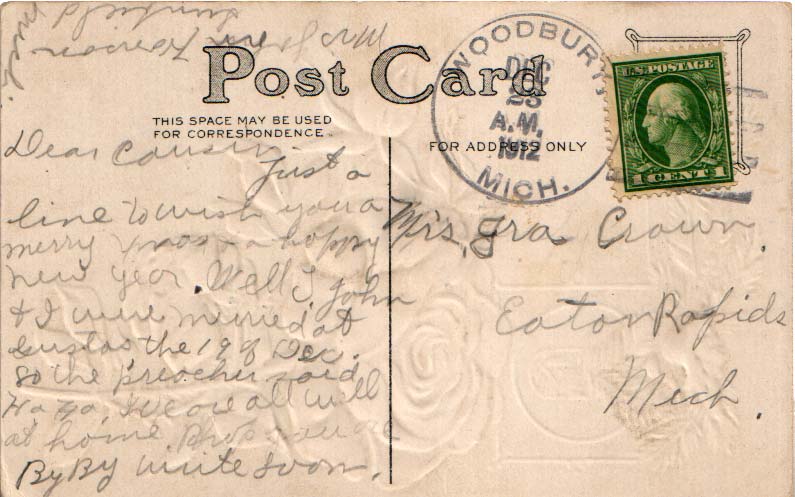 Post Card
THIS SPACE MAY BE USED
FOR CORRESPONDENCE.
FOR ADDRESS ONLY
WOODBURY
DEC
23
A.M.
1912
MICH.
U.S. POSTAGE
1 CENT 1
Dear Cousin
Just a
line to wish you a
merry Xmas & a happy
new year. Well, John
& I were merried at
the 19 of Dec.
So the preacher said
Ha ha. We are all well
at home. hope you are
By By write soon.
Mrs. Ira Crown.
Eaton Rapids
Mich.
Mrs John
Sunfield
Mich.